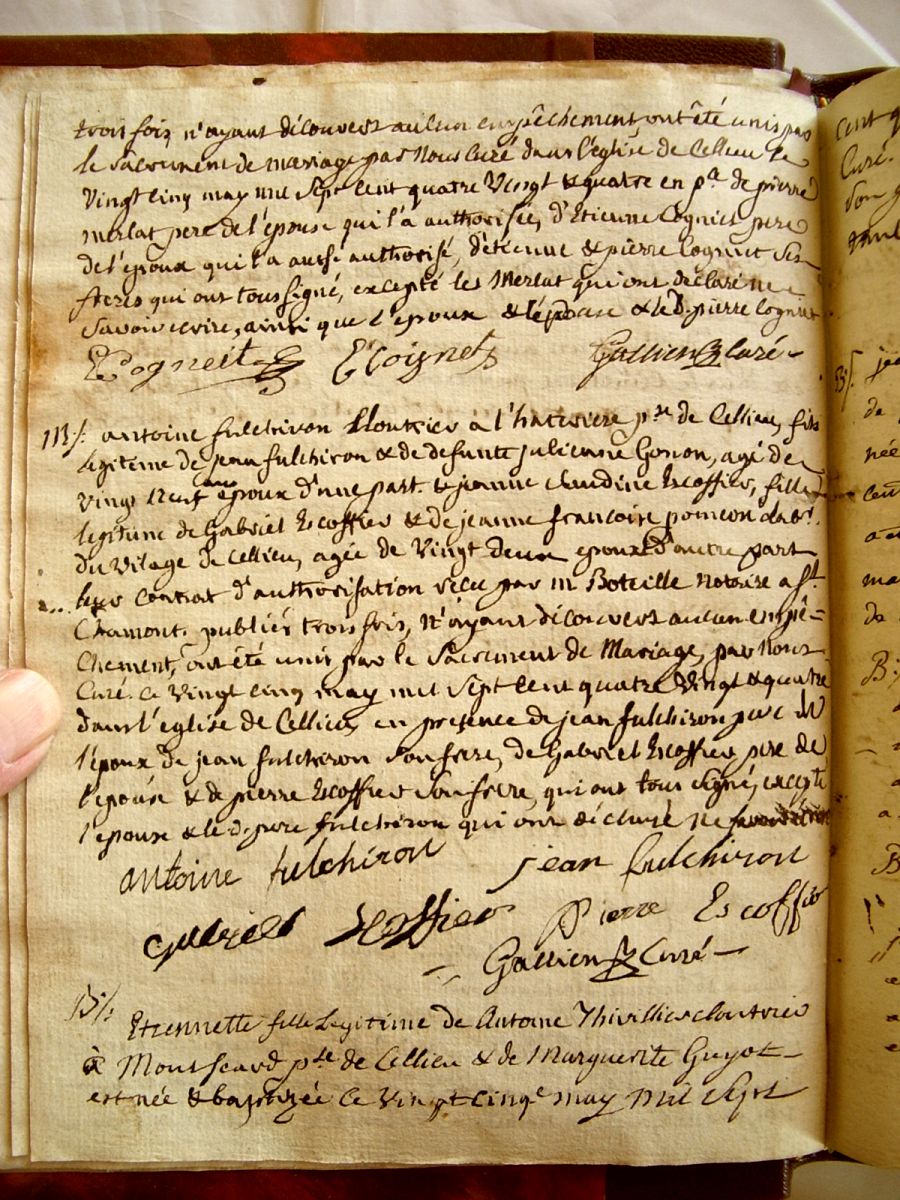 trois fois, n'ayant découvers aucun empêchement ont été unis par
le sacrement de mariage par Nous Curé dans l'église de Cellieu le
vingt cinq may mil sept cent quatre vingt & quatre en p.ce de pierre
merlat pere de l'épouse qui l'a authorisée, d'Etienne Cognet pere
de l'époux qui l'a aussi authorisé, d'étienne & pierre Cognet ses
freres qui ont tous signé, excepté les Merlat qui ont déclaré ne
savoir écrire, ainsi que l'époux & l'épouse & le D. pierre Cognet
E Cogneit E Coignet Gallien Curé
M/: antoine fulchiron Cloutrier à p.sse de Cellieu, fils
légitime de jean fulchiron & de defunte julienne Gonon, agé de
vingt neuf ans époux d'une part. & jeanne Claudine Escoffier, fille
légitime de Gabriel Escoffier & de jeanne françoise poincon
du vilage de Cellieu, agée de vingt deux epouse d'autre part
leur contrat d'authorisation récu par m Boteille notaire a St.
Chamont. publiés trois fois, n'ayant découvers aucun empê-
chement, ont été unis par le sacrement de Mariage, par Nous
Curé ce vingt cinq may mil sept cent quatre vingt & quatre
dans l'église de Cellieu, en présence de jean fulchiron pere de
l'époux de jean fulchiron son frere, de Gabriel Escoffier pere de
l'épouse & de pierre Escoffier son frere, qui ont tous signé, excepté
l'épouse & le d. pere fulchiron qui ont déclaré ne
antoine fulchiron jean fulchiron
Gabriel Escoffier Pierre Escoffier
Gallien Curé
B/: Etiennette fille Légitime de Antoine Thivillier cloutrier
à Montfeard p.sse de Cellieu & de Marguerite Guyot
est née & baptizée Ce Vingt cinq.e may mil Sept